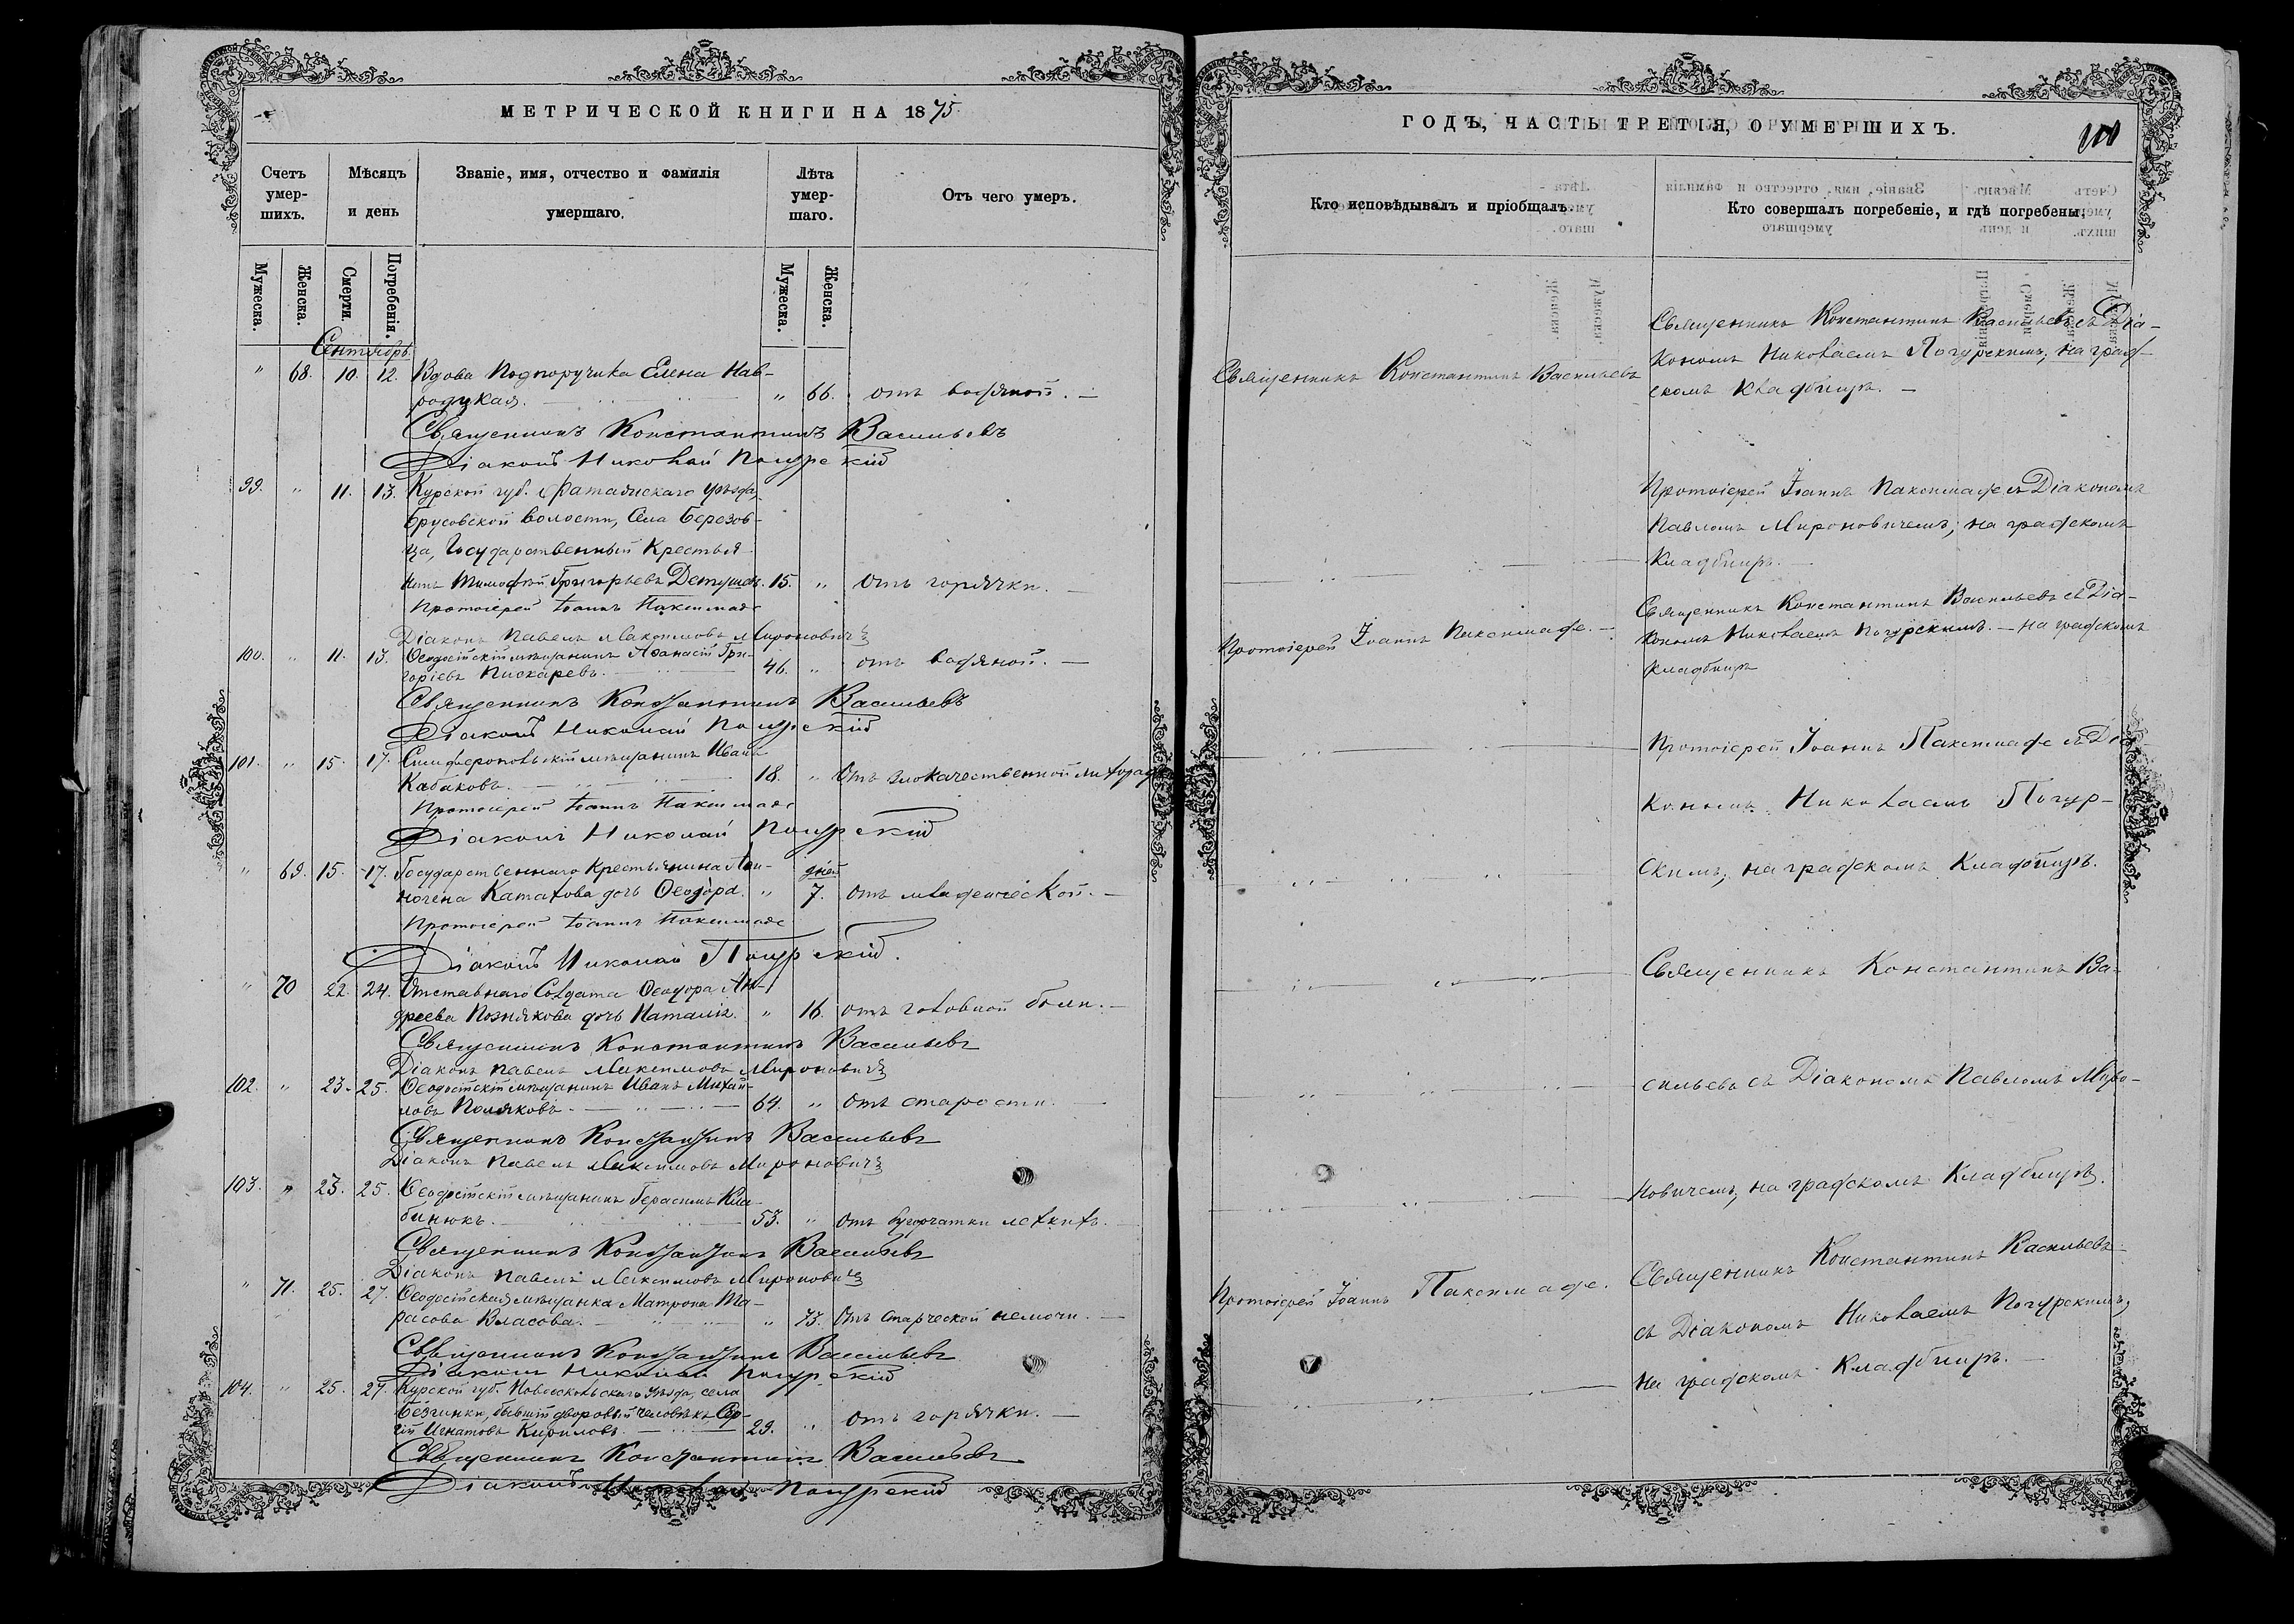 МЕТРИЧЕСКОЙ КНИГИ НА 1875
Счетъ умер-шихъ.
Мѣсяцъ и день
Званіе, имя, отчество и фамилія умершаго.
Лѣта умер-шаго.
Отъ чего умеръ.
Мужеска.
Женска.
Смерти.
Погребенія.
Мужеска.
Женска.
Сентябрь
" 68. 10. 12. Вдова Подпоручика Елена Нав-
родзкая. " 66. отъ водяной.
Священникъ Константинъ Васильевъ
Діаконъ Николай Погурскій
99. " 11. 13. Курской губ. Фатежскаго уѣзда,
Брусовской волости, села Березов-
ца, Государственный Крестья-
нинъ Тимофѣй Григорьевъ 15. " отъ горячки.
Протоіерей Іоаннъ Паксимаде
Діаконъ Павелъ Максимовъ Мироновичъ
100. " 11. 13. Ѳеодосійскій мѣщанинъ Аѳанасій Гри-
горіевъ Пискаревъ. 46. " отъ водяной.
Священникъ Константинъ Васильевъ
Діаконъ Николай Погурскій
101. " 15. 17. Симферопольскій мѣщанинъ Иванъ
Кабаковъ. 18. " Отъ злокачественной лихорадки
Протоіерей Іоаннъ Паксимаде
Діаконъ Николай Погурскій
" 69. 15. 17. Государственнаго Крестьянина
дней
Катахова дочь Ѳеодора. " 7. отъ младенческой.
Протоіерей Іоаннъ Паксимаде
Діаконъ Николай Погурскій.
" 70 22. 24. Отставнаго Солдата Ѳеодора Ан-
дреева Познякова дочь Наталія. " 16. отъ головной боли.
Священникъ Константинъ Васильевъ
Діаконъ Павелъ Максимовъ Мироновичъ
102. " 23. 25. Ѳеодосійскій мѣщанинъ Иванъ Михай-
ловъ Поляковъ. 64. " отъ старости.
Священникъ Константинъ Васильевъ
Діаконъ Павелъ Максимовъ Мироновичъ
103. " 23. 25. Ѳеодосійскій мѣщанинъ Герасимъ
бинюкъ. 53. " отъ бугорчатки легкихъ.
Священникъ Константинъ Васильевъ
Діаконъ Павелъ Максимовъ Мироновичъ
" 71. 25. 27. Ѳеодосійская мѣщанка Матрона Та-
расова Власова. " 73. Отъ старческой немочи.
Священникъ Константинъ Васильевъ
Діаконъ Николай Погурскій
104. " 25. 27. Курской губ. Новооскольскаго уѣзда, села
Безгинки, бывшій дворовый человѣкъ Сер-
гій Игнатовъ Кириловъ 29. " отъ горячки.
Священникъ Константинъ Васильевъ
Діаконъ Николай Погурскій
ГОДЪ, ЧАСТЬ ТРЕТІЯ, О УМЕРШИХЪ.
Кто исповѣдывалъ и пріобщалъ.
Кто совершалъ погребеніе, и гдѣ погребены.
Священникъ Константинъ Васильевъ
Священникъ Константинъ Васильевъ съ Діа-
кономъ Николаемъ Погурскимъ, на град-
скомъ кладбищѣ.
Протоіерей Іоаннъ Паксимаде съ Діакономъ
Павломъ Мироновичемъ, на градскомъ
кладбищѣ.
Протоіерей Іоаннъ Паксимаде.
Священникъ Константинъ Васильевъ съ Діа-
кономъ Николаемъ Погурскимъ. на градскомъ
кладбищѣ
Протоіерей Іоаннъ Паксимаде съ Діа-
кономъ Николаемъ Погур-
скимъ, на градскомъ кладбищѣ.
Священникъ Константинъ Ва-
сильевъ съ Діакономъ Павломъ Миро-
новичемъ, на градскомъ Кладбищѣ.
Протоіерей Іоаннъ Паксимаде.
Священникъ Константинъ Васильевъ
съ Діакономъ Николаемъ Погурскимъ,
на градскомъ Кладбищѣ.